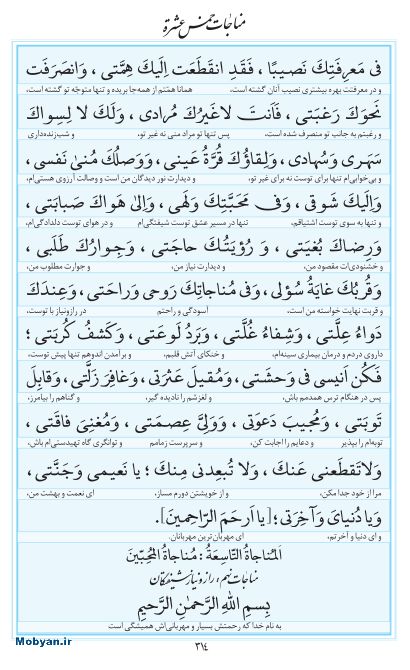 مناجات خمس عشرة
فى مَعرِفَتِكَ نَصيبًا ، فَقَدِ انقَطَعَت اِلَيكَ هِمَّتى ، وَانصَرَفَت
و در معرفتت بهره بیشتری نصیب آنان گشته است، همانا همّتم از همه‌جا بریده و تنها متوجّه تو گشته است،
نَحوَكَ رَغبَتى ، فَاَنتَ لاغَيرُكَ مُرادى ، وَلَكَ لا لِسِواكَ
و رغبتم به جانب تو منصرف شده است، پس تنها تو مراد منی نه غیر تو، و شب‌زنده‌داری
سَهَرى وَسُهادى ، وَلِقاؤُكَ قُرَّةُ عَينى ، وَوَصلُكَ مُنىٰ نَفسى ،
و بی‌خوابی‌ام تنها برای توست نه برای غیر تو، و دیدارت نور دیدگان من است و وصالت آرزوی هستی‌ام،
وَاِلَيكَ شَوقى ، وَفى مَحَبَّتِكَ وَلَهى ، وَاِلىٰ هَواكَ صَبابَتى ،
و تنها به سوی توست اشتیاقم، تنها در مسیر عشق توست شیفتگی‌ام و در هوای توست دلدادگی‌ام،
وَرِضاكَ بُغيَتى ، وَ رُؤيَتُكَ حاجَتى ، وَجِوارُكَ طَلَبى ،
و خشنودی‌ات مقصود من، و دیدارت نیاز من، و جوارت مطلوب من،
وَقُربُكَ غايَةُ سُؤلى ، وَفى مُناجاتِكَ رَوحى وَراحَتى ، وَعِندَكَ
و قربت نهایت خواسته من است، در رازونیاز با توست، آسودگی و راحتم
دَواءُ عِلَّتى ، وَشِفاءُ غُلَّتى ، وَبَردُ لَوعَتى ، وَكَشفُ كُربَتى ؛
داروی دردم و درمان بیماری سینه‌ام، و خنکای آتش قلبم، و برآمدن اندوهم تنها پیش توست،
فَكُن اَنيسى فى وَحشَتى ، وَمُقيلَ عَثرَتى ، وَغافِرَ زَلَّتى ، وَقابِلَ
پس در هنگام ترس همدمم باش، و لغزشم را نادیده گیر، و گناهم را بیامرز،
تَوبَتى ، وَمُجيبَ دَعوَتى ، وَوَلِىَّ عِصمَتى ، وَمُغنِىَ فاقَتى ،
توبه‌ام را بپذیر و دعایم را اجابت کن، و سرپرست زمامم و توانگری گاه تهیدستی‌ام باش،
وَلاتَقطَعنى عَنكَ ، وَلا تُبعِدنى مِنكَ ؛ يا نَعيمى وَجَنَّتى ،
مرا از خود جدا مکن، و از خویشتن دورم مساز، ای نعمت و بهشت من،
وَيا دُنياىَ وَآخِرَتى ؛ [يا اَرحَمَ الرّاحِمينَ].
و ای دنیا و آخرتم، ای مهربان‌ترین مهربانان.
اَلمُناجاةُ التّاسِعَةُ : مُناجاةُ المُحِبّينَ
مناجات نهم : راز و نیاز شیفتگان
بِسمِ اللهِ الرَّحمٰنِ الرَّحيمِ
به نام خدا که رحمتش بسیار و مهربانی‌اش همیشگی است
Mobyan.ir ٣١٤